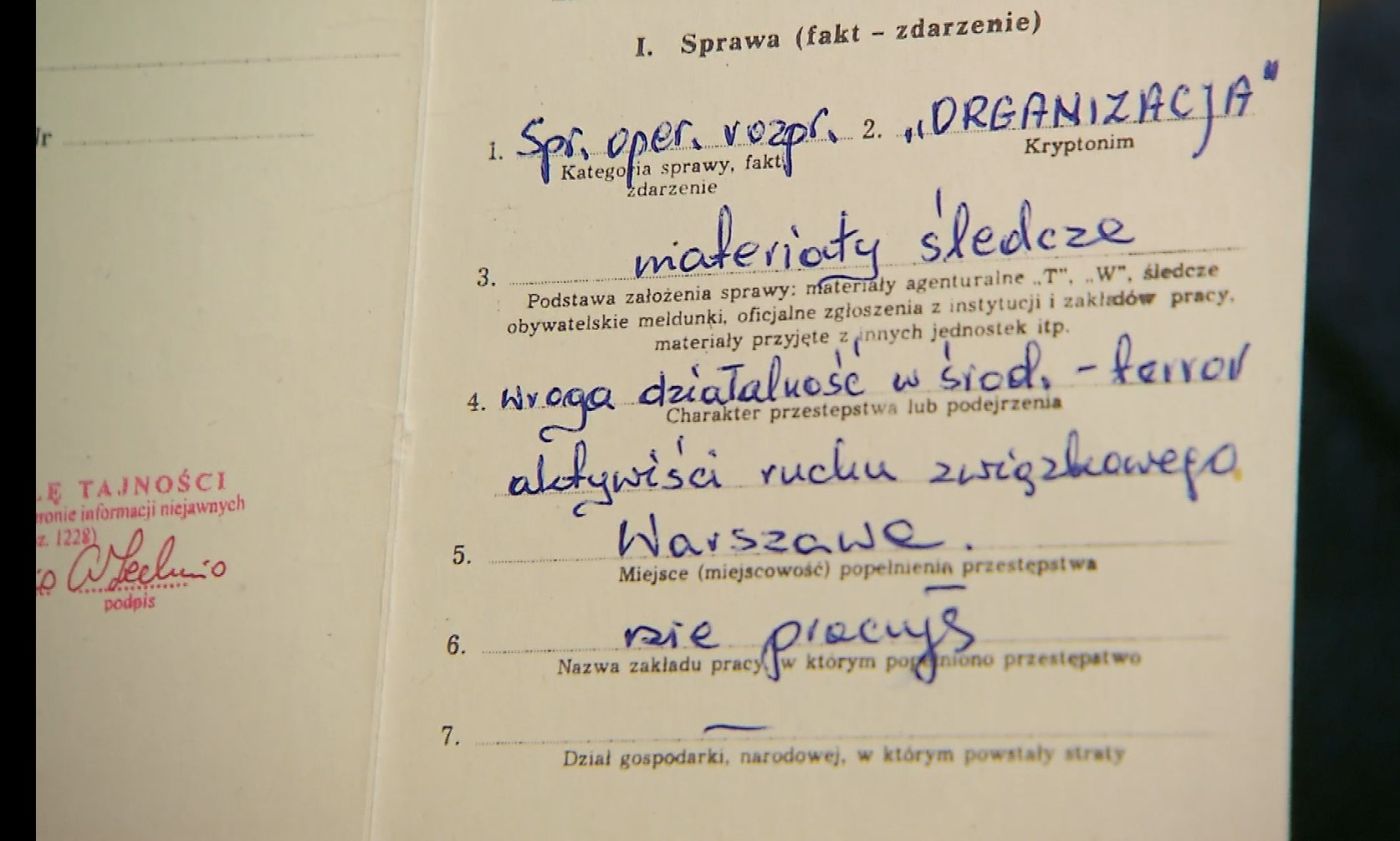 Nr
I. Sprawa (fakt – zdarzenie)
1. Spr. oper. rozpr. 2. „ORGANIZACJA"
Kategoria sprawy, fakt, Kryptonim
zdarzenie
3. materiały śledcze
Podstawa założenia sprawy: materiały agenturalne „T", „W", śledcze
obywatelskie meldunki, oficjalne zgłoszenia z instytucji i zakładów pracy,
materiały przyjęte z innych jednostek itp.
4. wroga działalność w środ. – terror
Charakter przestępstwa lub podejrzenia
aktywiści ruchu związkowego
5. Warszawa.
Miejsce (miejscowość) popełnienia przestępstwa
6. nie pracuje
Nazwa zakładu pracy, w którym popełniono przestępstwo
7. —
Dział gospodarki, narodowej, w którym powstały straty
Ę TAJNOŚCI
ronie informacji niejawnych
z. 1228)
podpis